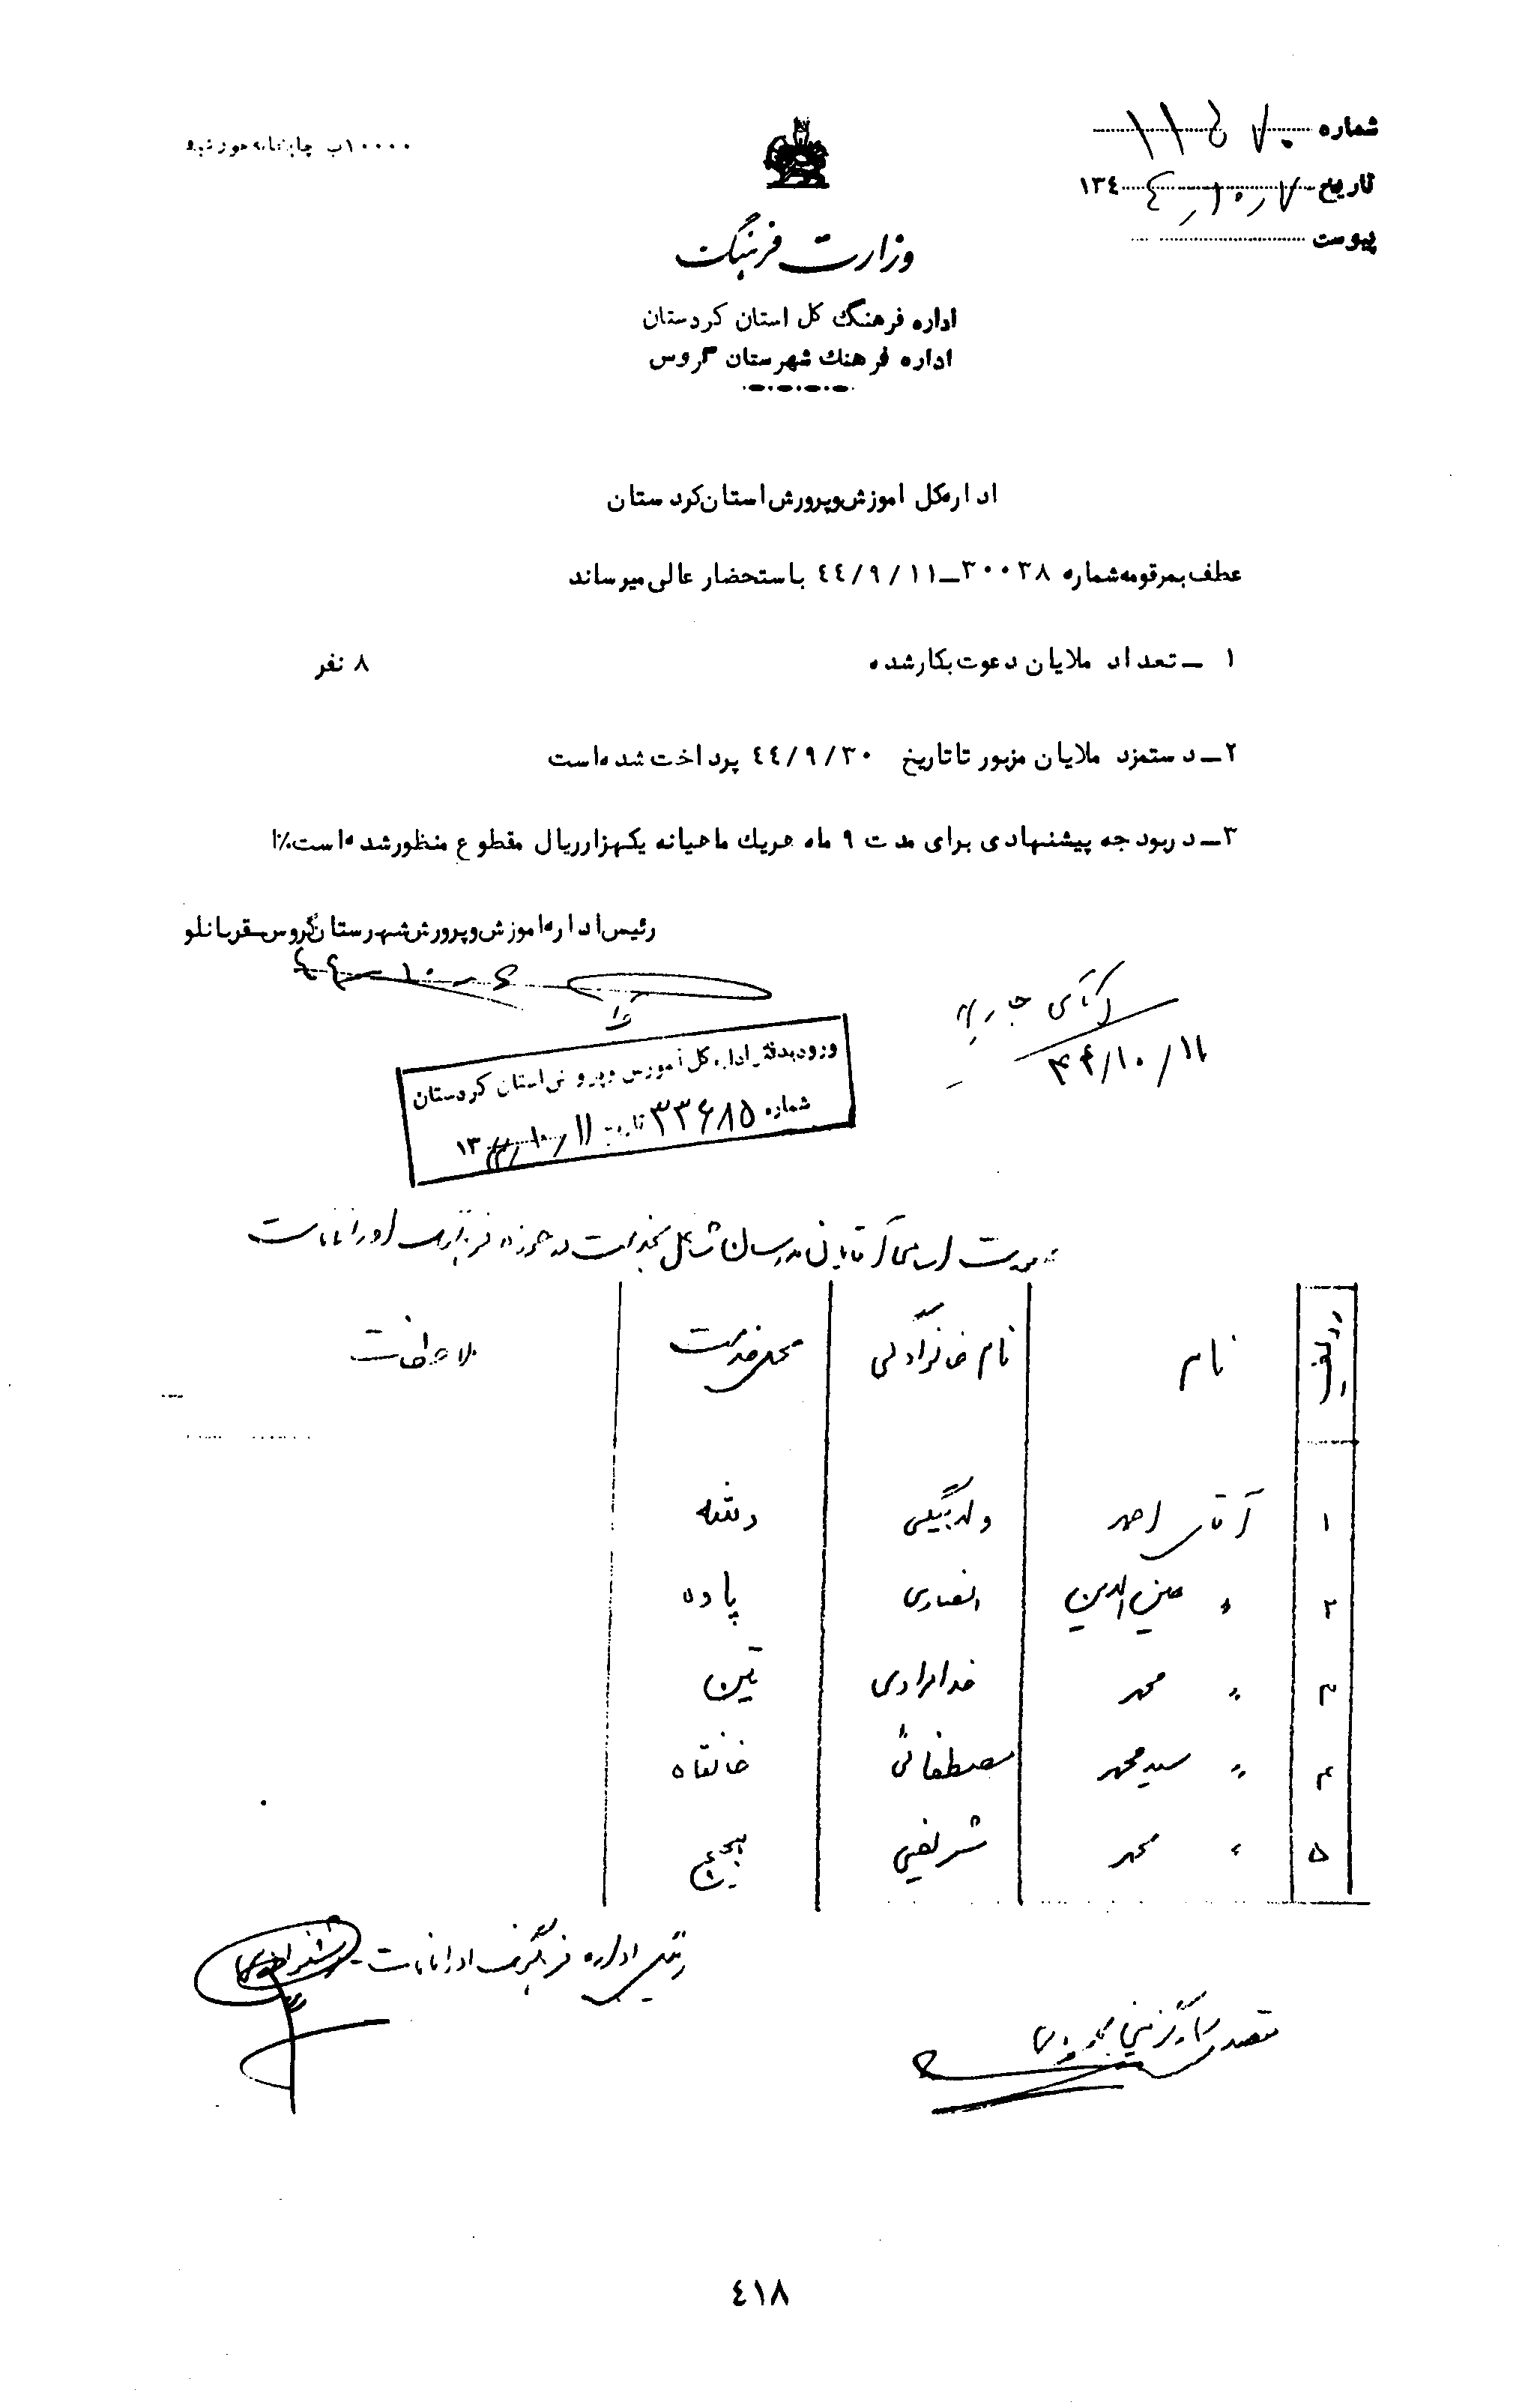 شماره
۱۰۰۰۰ب چاپخانه
تاریخ ۷ر۱۰ر۱۳٤٤
پیوست
وزارت فرهنگ
اداره فرهنگ کل استان کردستان
اداره فرهنك شهرستان گروس
اداره‌کل اموزش‌وپرورش‌استان‌کردستان
عطف‌بمرقومه‌شماره ۳۰۰۳۸ــ٤٤/۹/۱۱ باستحضار عالی‌میرساند
۱ ــ تعداد ملایان دعوت‌بکارشده ۸ نفر
۲ــ دستمزد ملایان مزبور تاتاریخ ٤٤/۹/۳۰ پرداخت شده‌است
۳ــ دربودجه پیشنهادی برای مدت ۹ ماه هریك ماهیانه یکهزارریال مقطوع منظورشده‌است٪ا
رئیس‌اداره‌اموزش‌وپرورش‌شهرستان‌گروس‌ــقربانلو
آقای
۴۴/۱۰/۱۱
ورودبدفتر اداره‌کل آموزش وپرورش‌استان کردستان
شماره ۳۳۶۸۵ تاریخ ۱۱/۱۰/ ۱۳
صورت اسامی آقایان مدرسان شاغل بخدمت در حوزه فرهنگ اورامانات
ردیف نام نام خانوادگی محل خدمت ملاحظات
۱ آقای احمد ولدبیگی دشه
۲ » معین‌الدین انصاری پاوه
۳ » محمد خدامرادی تین
۴ » سیدمحمد مصطفائی خانقاه
۵ » محمد شریفی
رئیس اداره فرهنگ اورامانات ـ
متصدی کارگزینی
٤١٨